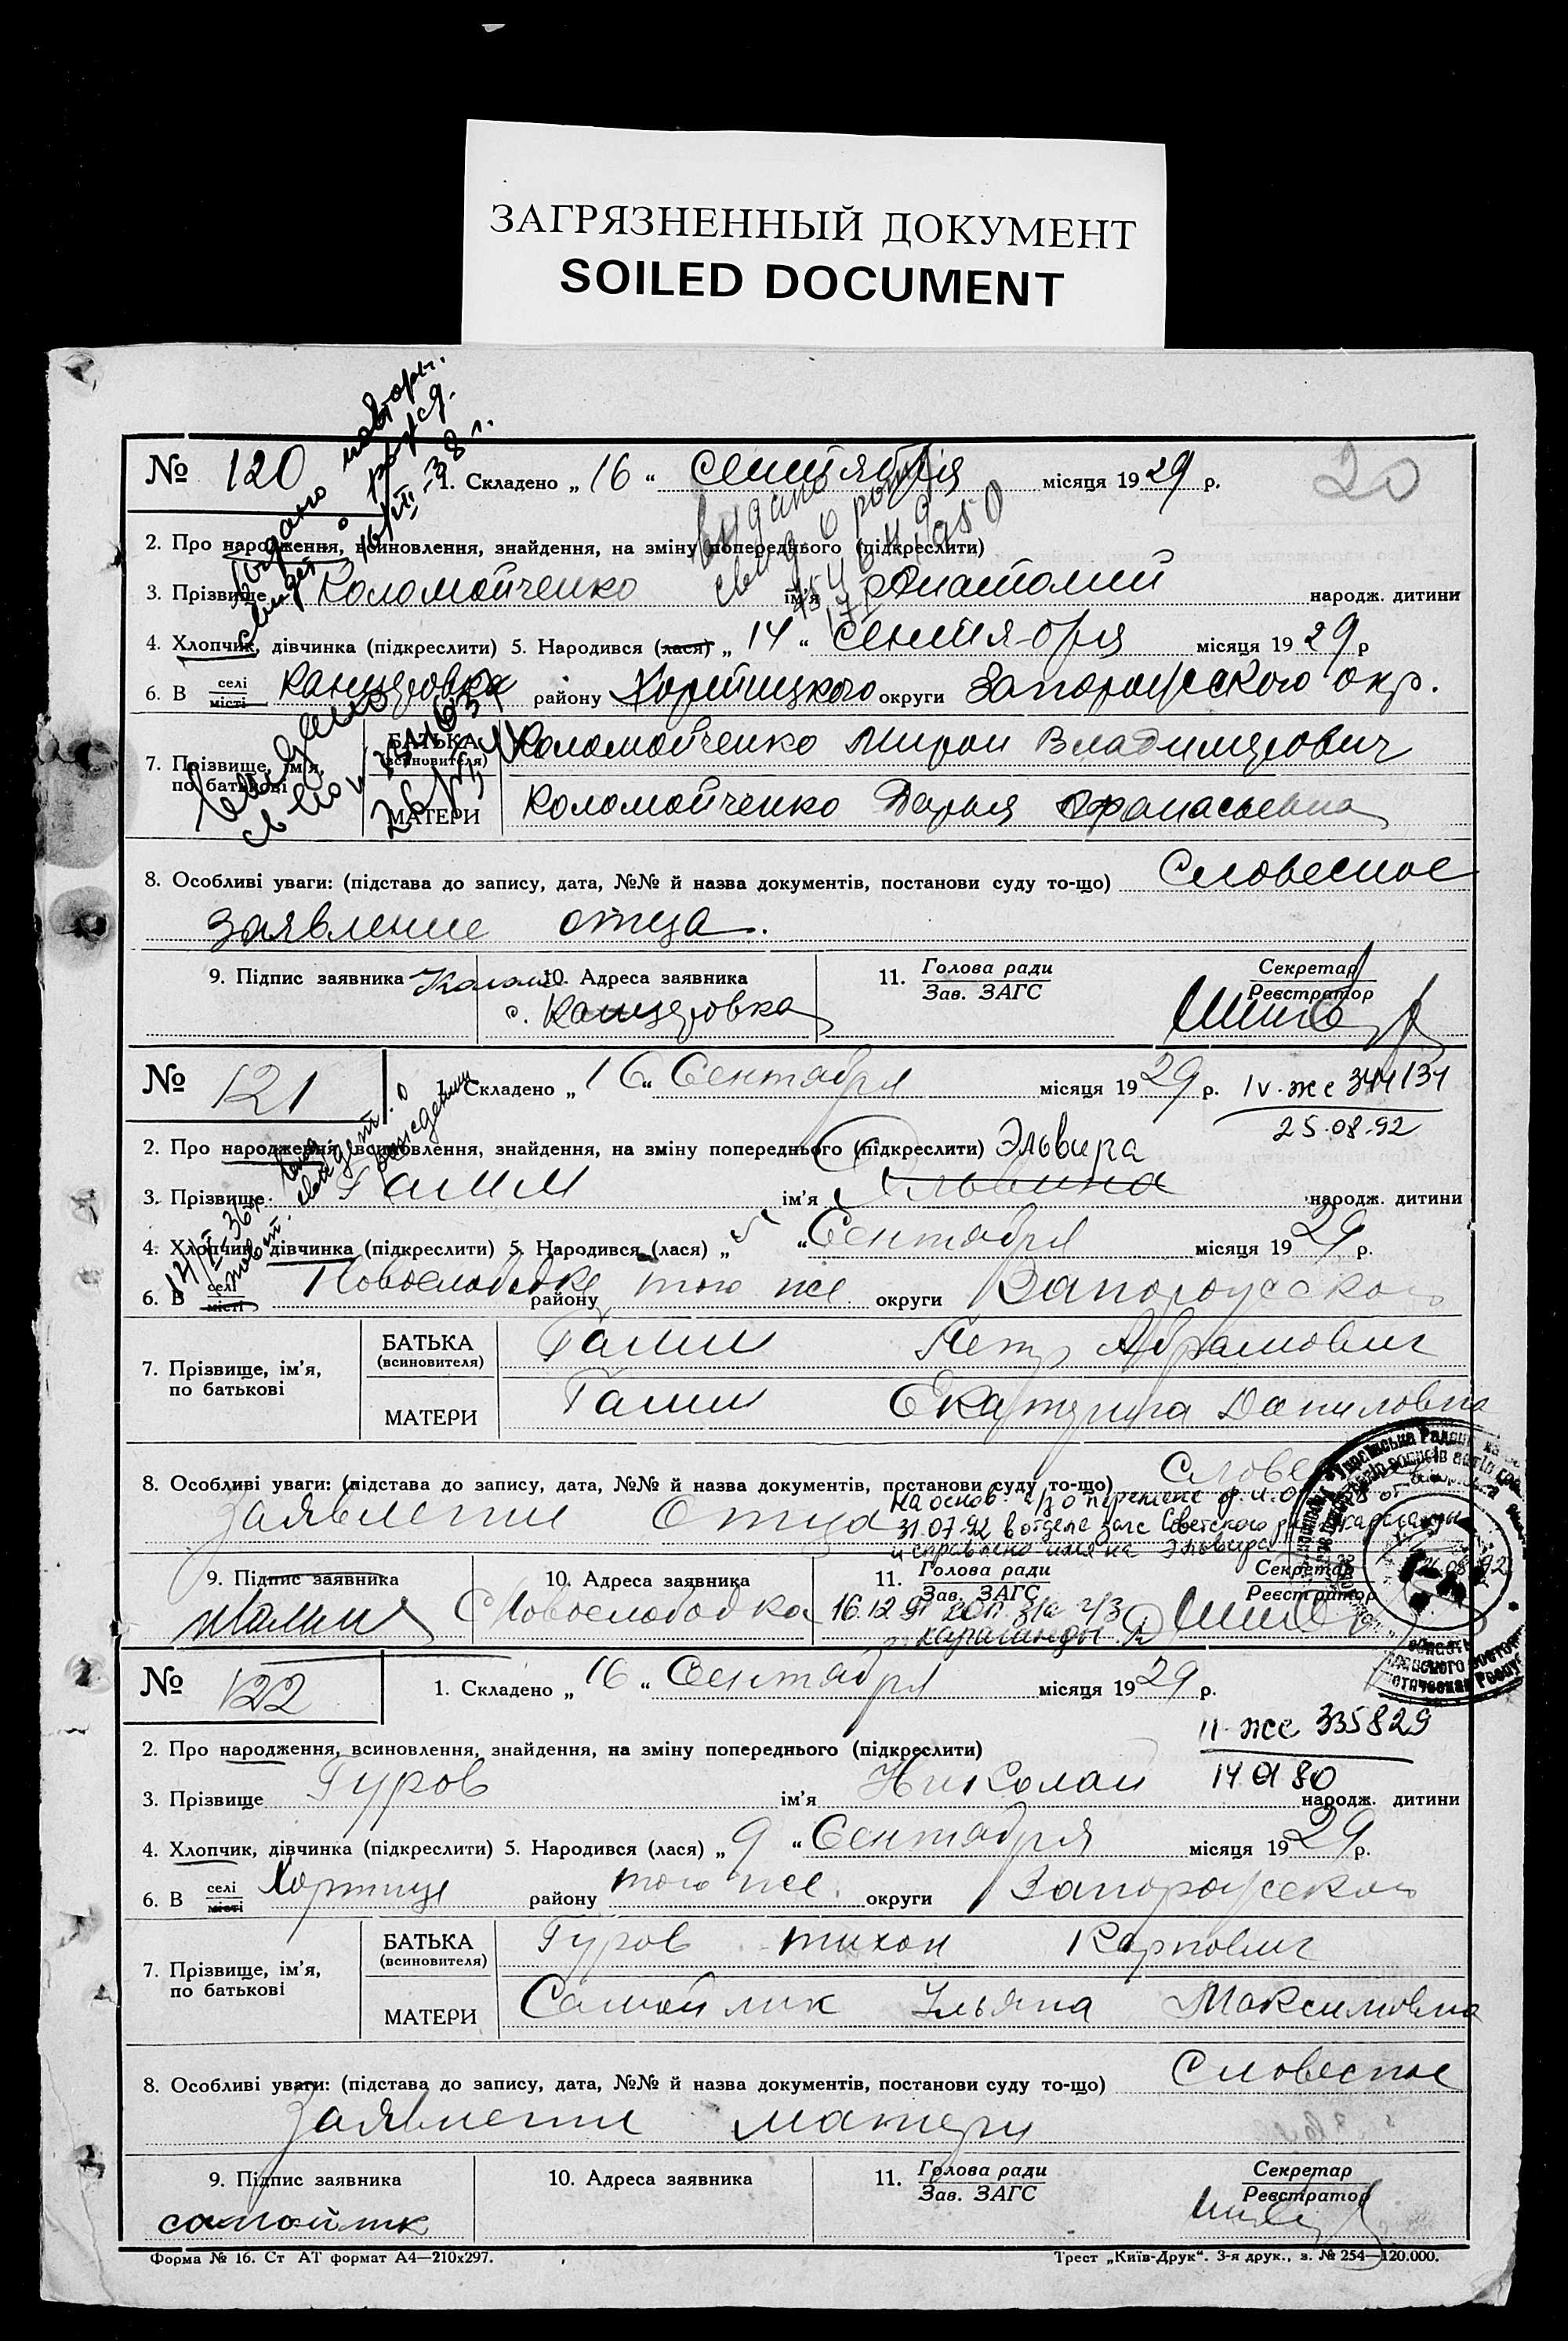 ЗАГРЯЗНЕННЫЙ ДОКУМЕНТ
SOILED DOCUMENT
№ 120
1. Складено „ 16 “ сентября місяця 1929 р.
20
2. Про народження, всиновлення, знайдення, на зміну попереднього (підкреслити)
3. Прізвище Коломойченко ім'я Анатолий народж. дитини
4. Хлопчик, дівчинка (підкреслити) 5. Народився (лася) „ 14 “ сентября місяця 1929 р
6. В селі місті Канцеровка району Хортицкого округи Запорожского окр.
7. Прізвище, ім'я, по батькові
БАТЬКА (всиновителя) Коломойченко Мирон Владимирович
МАТЕРИ Коломойченко Дарья Афанасьевна
8. Особливі уваги: (підстава до запису, дата, №№ й назва документів, постанови суду то-що) Словесное
заявление отца.
9. Підпис заявника
10. Адреса заявника
11. Голова ради Зав. ЗАГС
Секретар Реєстратор
с. Канцеровка
№ 121
1. Складено „ 16 “ Сентября місяця 1929 р.
IV-же 344134
25.08.92
2. Про народження, всиновлення, знайдення, на зміну попереднього (підкреслити) Эльвира
3. Прізвище Гамм ім'я Эльвина народж. дитини
4. Хлопчик, дівчинка (підкреслити) 5. Народився (лася) „ 5 “ Сентября місяця 1929 р.
6. В селі місті Новослободке району того же округи Запорожского
7. Прізвище, ім'я, по батькові
БАТЬКА (всиновителя) Гамм Петр Абрамович
МАТЕРИ Гамм Екатерина Даниловна
8. Особливі уваги: (підстава до запису, дата, №№ й назва документів, постанови суду то-що) Словесное
Заявление Отца
на основ. о перемене ф.и.о.
31.07.92 в отделе загс Советского Караганды
исправлено имя на Эльвира
9. Підпис заявника
10. Адреса заявника
11. Голова ради Зав. ЗАГС
Секретар Реєстратор
С Новослободка
16.12.91
Караганды
№ 122
1. Складено „ 16 “ Сентября місяця 1929 р.
II-же 335829
2. Про народження, всиновлення, знайдення, на зміну попереднього (підкреслити)
3. Прізвище Гуров ім'я Николай народж. дитини
4. Хлопчик, дівчинка (підкреслити) 5. Народився (лася) „ 9 “ Сентября місяця 1929 р.
6. В селі місті Хортице району того же округи Запорожского
7. Прізвище, ім'я, по батькові
БАТЬКА (всиновителя) Гуров Тихон Карпович
МАТЕРИ Самойлик Ульяна Максимовна
8. Особливі уваги: (підстава до запису, дата, №№ й назва документів, постанови суду то-що) Словесное
Заявление матери
9. Підпис заявника
10. Адреса заявника
11. Голова ради Зав. ЗАГС
Секретар Реєстратор
самойлик
Форма № 16. Ст АТ формат А4—210x297.
Трест „Київ-Друк“. 3-я друк., з. № 254—120.000.